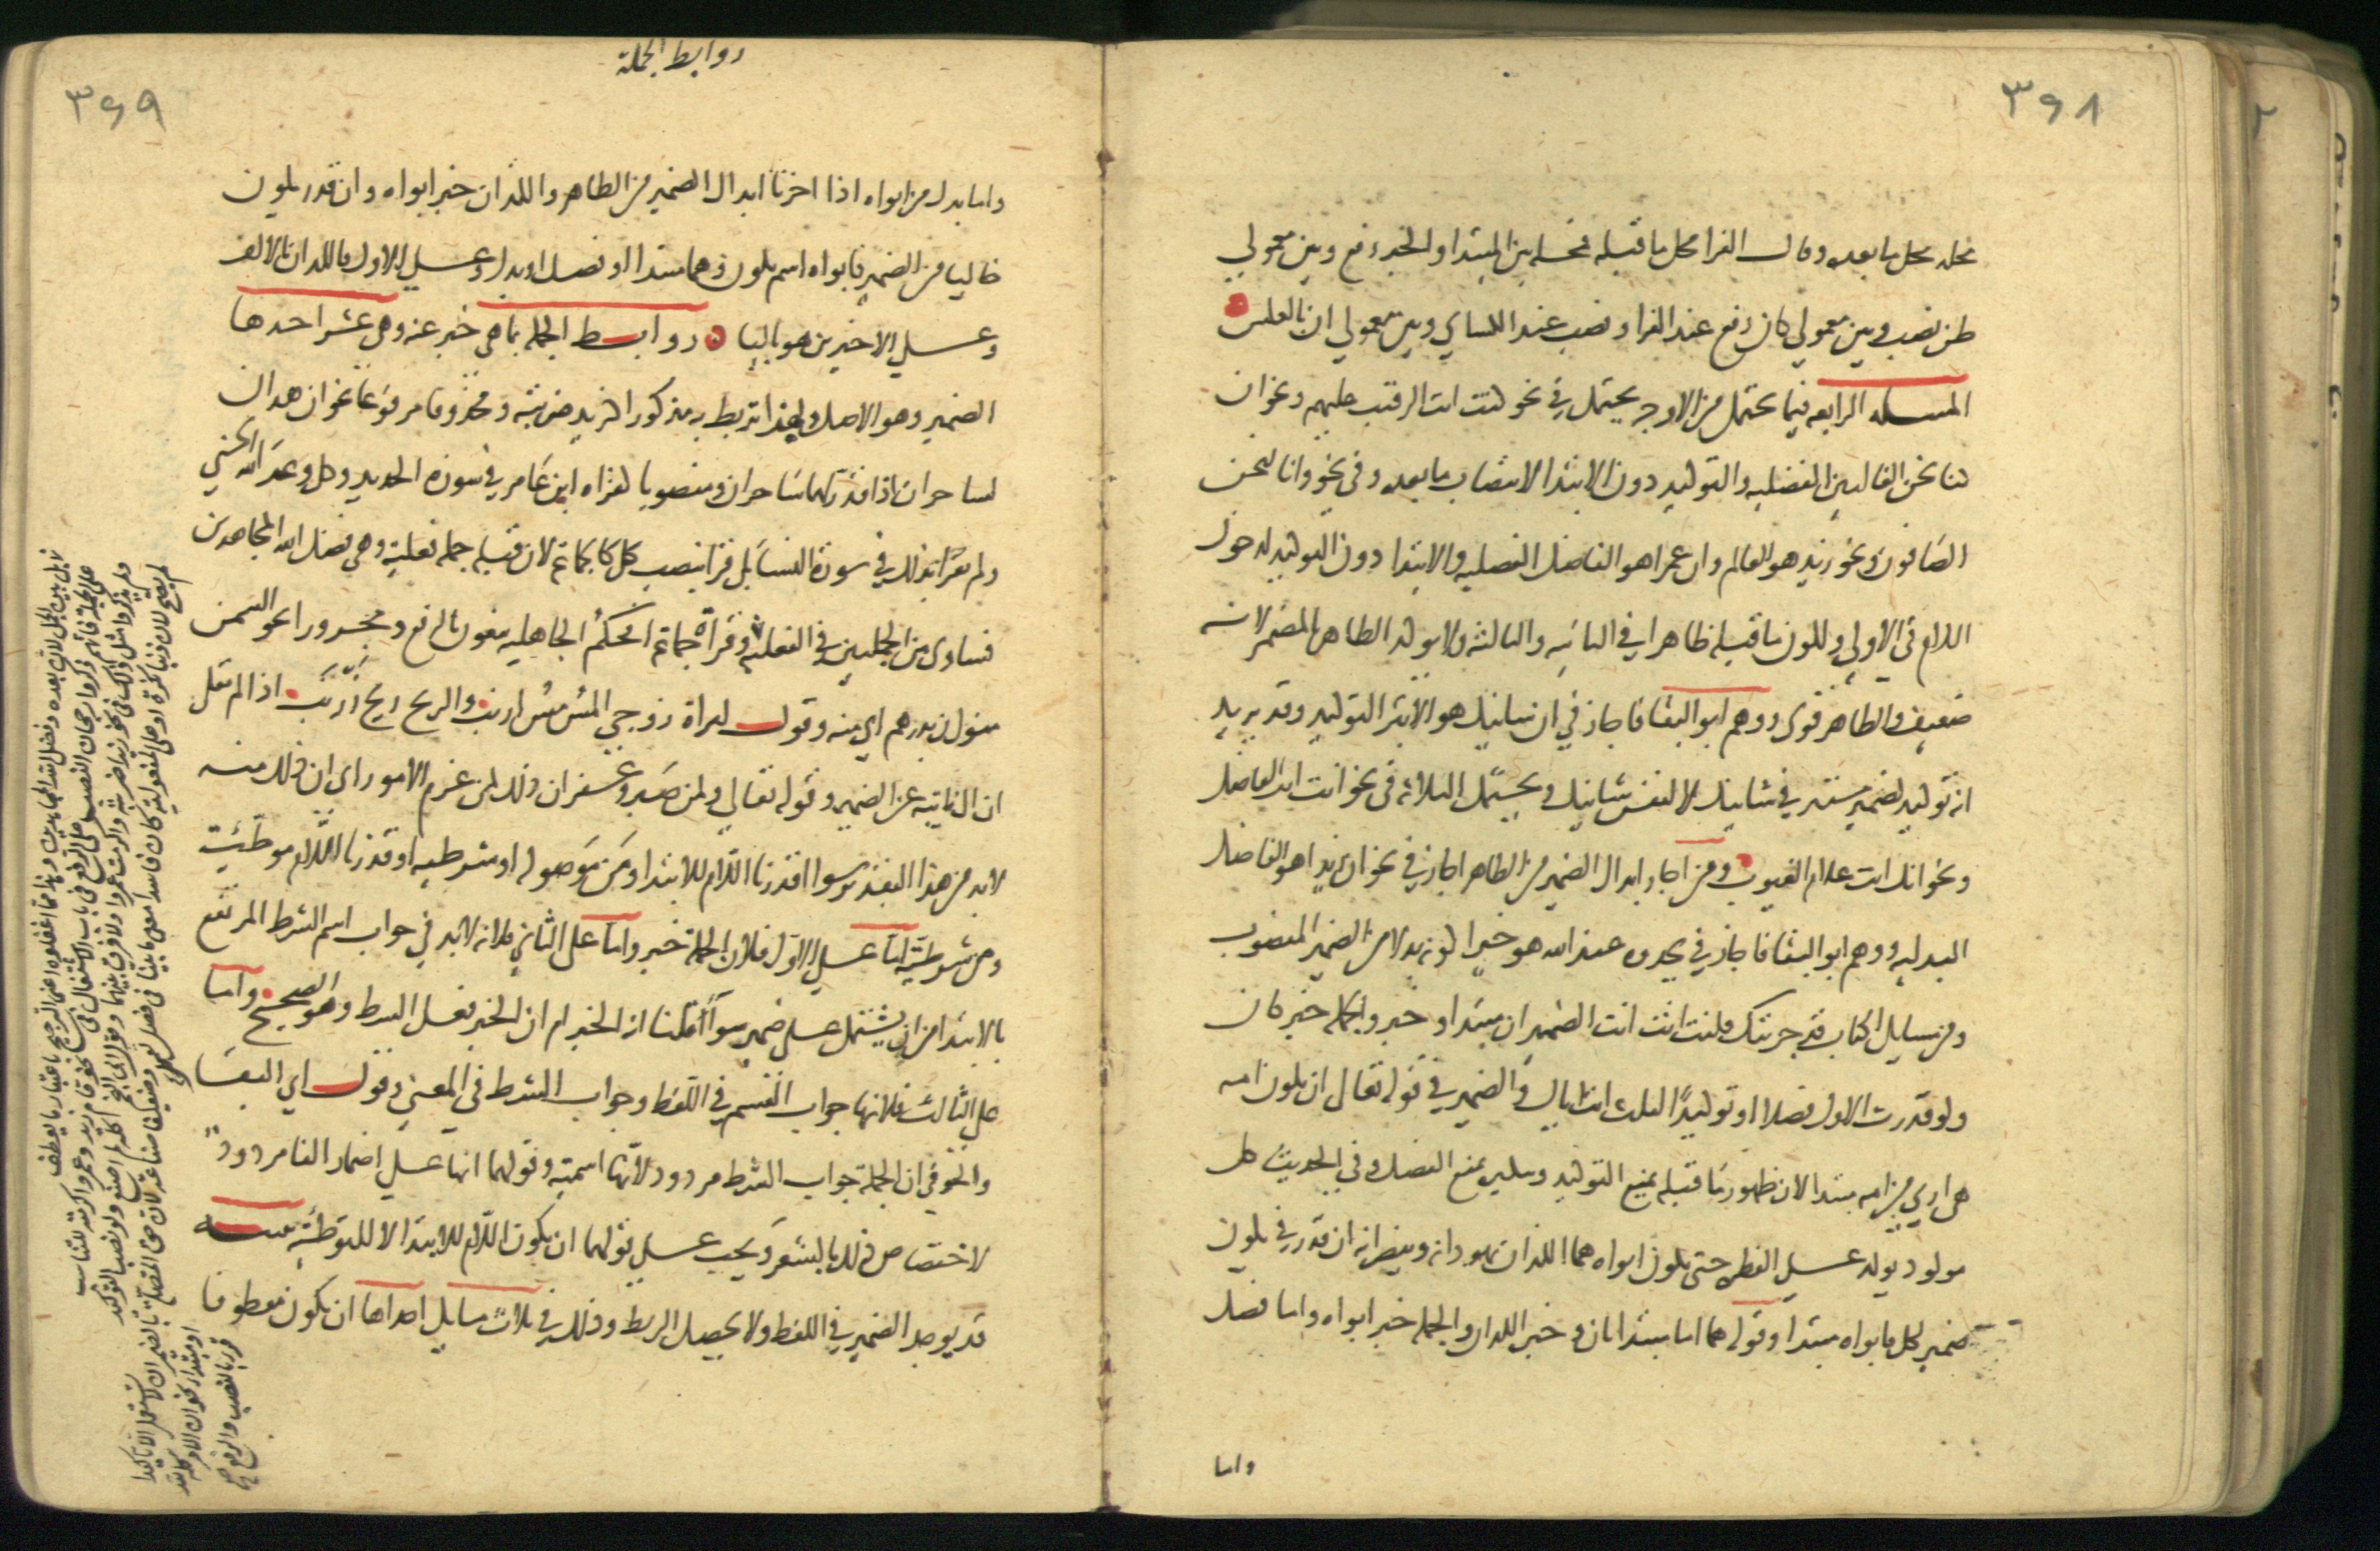 ٣٦٨
محله محل ما بعده وقال الفرا محل ما قبله فمحله بين المبتدا والخبر رفع وبين معمولي
ظن نصب وبين معمولي كان رفع عند الفرا ونصب عند الكساي وبين معمولي ان بالعكس
المسله الرابعه فيما يحتمل من الاوجه يحتمل في نحو كنت انت الرقيب عليهم ونحو ان
كنا نحن الغالبين الفصليه والتوكيد دون الابتدا لانتصاب ما بعده وفي نحو وانا لنحن
الصافون ونحو زيد هو العالم وان عمرا هو الفاضل الفصليه والابتدا دون التوكيد لدخول
اللام في الاولي ولكون ما قبله ظاهرا في الثانيه والثالثه ولا يوكد الظاهر بالمضمر لانه
ضعيف والظاهر قوي ووهم ابو البقا فاجاز في ان شانيك هو الابتر التوكيد وقد يريد
انه توكيد لضمير مستتر في شانيك لا لنفس شانيك ويحتمل الثلاثه في نحو انت انت الفاضل
ونحو انك انت علام الغيوب ومن اجاز ابدال الضمير من الظاهر اجاز في نحو ان زيدا هو الفاضل
البدليه ووهم ابو البقا فاجاز في تجدوه عند الله هو خيرا كونه بدلا من الضمير المنصوب
ومن مسايل الكتاب قد جربتك فكنت انت انت الضميران مبتدا وخبر والجمله خبر كان
ولو قدرت الاول فصلا او توكيدًا لقلت انت اياك والضمير في قوله تعالى ان تكون امه
هي اربي من امه مبتدا لان ظهور ما قبله يمنع التوكيد وتنكيره يمنع الفصل وفي الحديث كل
مولود يولد على الفطره حتى يكون ابواه هما اللذان يهودانه وينصرانه ان قدر في يكون
ضمير لكل فابواه مبتدا وقوله هما اما مبتدا ثان وخبره اللذان والجمله خبر ابواه واما فصل
واما
روابط الجملة
٣٦٩
واما بدل من ابواه اذا اجزنا ابدال الضمير من الظاهر واللذان خبر ابواه وان قدر يكون
خاليا من الضمير فابواه اسم يكون وهما مبتدا او فصل او بدل وعلى الاول فاللذان بالالف
وعلى الاخيرين هو باليا روابط الجمله بما هي خبر عنه وهي عشر احدها
الضمير وهو الاصل ولهذا تربط به مذكورا كزيد ضربته ومحذوفا مرفوعا نحو ان هذان
لساحران اذا قدر لهما ساحران ومنصوبا كقراه ابن عامر في سورة الحديد وكل وعد الله الحسني
ولم يقرا بذلك في سورة النسا بل قرا بنصب كل كالجماعة لان قبله جمله فعلية وهي فضل الله المجاهدين
فساوى بين الجملتين في الفعليه وقراة جماعة افحكم الجاهليه يبغون بالرفع ومجرورا نحو السمن
منوان بدرهم اي منه وقول امراة زوجي المس مس ارنب والريح ريح زرنب اذا لم نقل
ان ال نايبه عن الضمير وقوله تعالى ولمن صبر وغفر ان ذلك لمن عزم الامور اي ان ذلك منه
لابد من هذا التقدير سوا اقدرنا اللام للابتدا ومَن موصوله او شرطيه او قدرنا اللام موطئة
ومن شرطية اما على الاول فلان الجملة خبر واما على الثاني فلانه لابد في جواب اسم الشرط المرتفع
بالابتدا من ان يشتمل على ضمير سوآ اقلنا انه الخبر ام ان الخبر فعل الشرط وهو الصحيح واما
على الثالث فلانها جواب القسم في اللفظ وجواب الشرط في المعني وقول ابي البقا
والحوفي ان الجملة جواب الشرط مردود لانها اسمية وقولهما انها على اضمار الفا مردود
لاختصاص ذلك بالشعر ويجب على قولهما ان تكون اللام للابتدا لا للتوطئة تنبيه
قد يوجد الضمير في اللفظ ولا يحصل الربط وذلك في ثلاث مسايل احداها ان يكون معطوفا